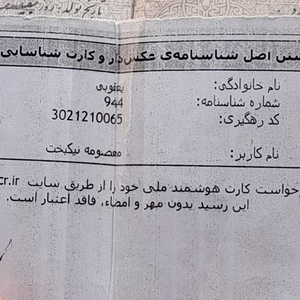 شتن اصل شناسنامه‌ی عکس‌دار و کارت شناسایی
نام خانوادگی: یعقوبی
شماره شناسنامه: 944
کد رهگیری: 3021210065
نام کاربر: معصومه نیکبخت
خواست کارت هوشمند ملی خود را از طریق سایت cr.ir
این رسید بدون مهر و امضاء، فاقد اعتبار است.